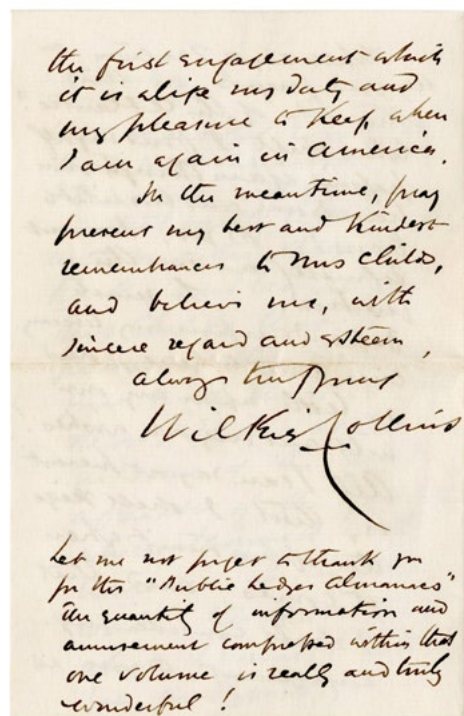 the first engagement which
it is alike my duty and
my pleasure to keep, when
I am again in America.
In the meantime, pray
present my best and kindest
remembrances to Mrs Childs,
and believe me, with
sincere regard and esteem,
always truly yours
Wilkie Collins
Let me not forget to thank you
for the "Public Ledger Almanacs"
The quantity of information and
amusement compressed within that
one volume is really and truly
wonderful!